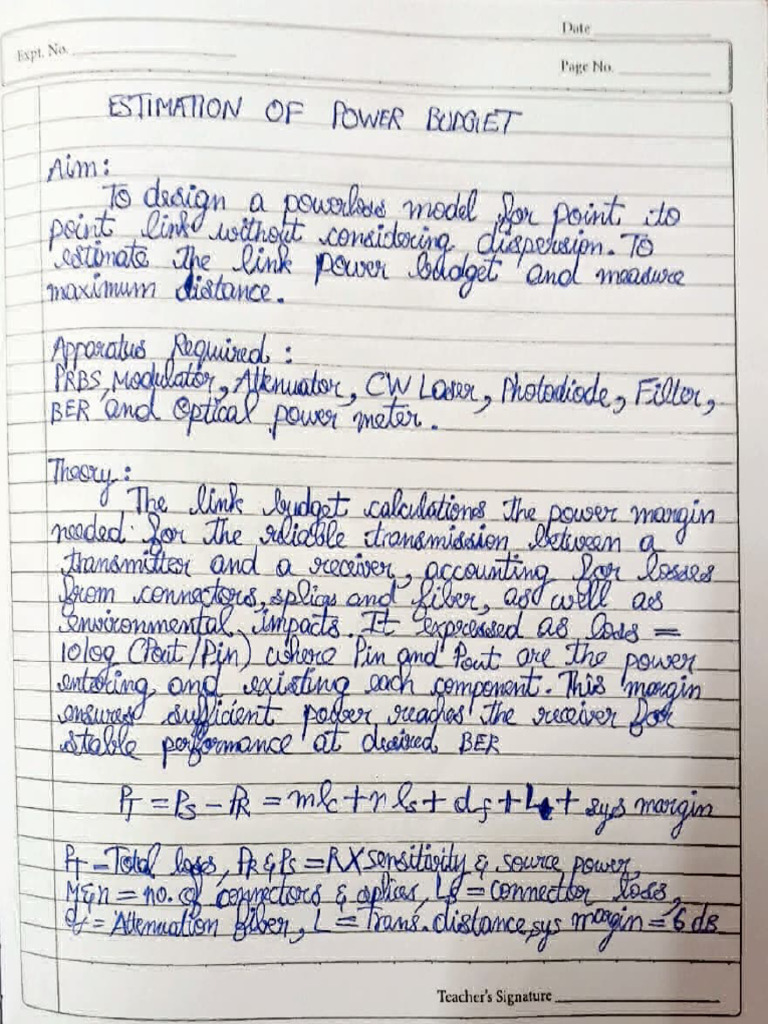 Date
Expt. No.
Page No.
ESTIMATION OF POWER BUDGET
Aim:
To design a powerloss model for point to
point link without considering dispersion. To
estimate the link power budget and measure
maximum distance.
Apparatus Required:
PRBS, Modulator, Attenuator, CW Laser, Photodiode, Filter,
BER and Optical power meter.
Theory:
The link budget calculations the power margin
needed for the reliable transmission between a
transmitter and a receiver, accounting for losses
from connectors, splices and fiber, as well as
environmental impacts. It expressed as loss =
10log (Pout/Pin) where Pin and Pout are the power
entering and existing each component. This margin
ensures sufficient power reaches the receiver for
stable performance at desired BER
PT = PS - PR = mlc + nls + df + L + sys margin
PT - Total loss, PR & PS = RX sensitivity & source power,
M & n = no. of connectors & splices, Ls = connector loss,
df = Attenuation fiber, L = Trans. distance, sys margin = 6 dB
Teacher's Signature